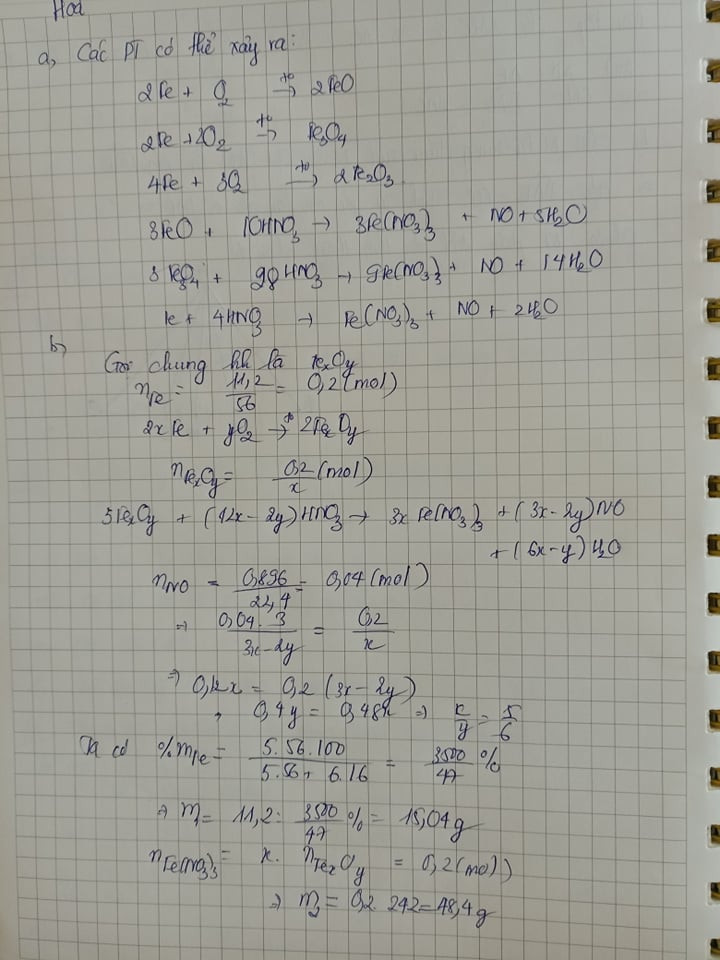 Hoá
a, Các PT có thể xảy ra:
2Fe + O₂ →(t°) 2FeO
2Fe + 2O₂ →(t°) Fe₃O₄
4Fe + 3O₂ →(t°) 2Fe₂O₃
3FeO + 10HNO₃ → 3Fe(NO₃)₃ + NO + 5H₂O
3Fe₃O₄ + 28HNO₃ → 9Fe(NO₃)₃ + NO + 14H₂O
Fe + 4HNO₃ → Fe(NO₃)₃ + NO + 2H₂O
b,
Gọi chung hh là FexOy
nFe = 11,2/56 = 0,2 (mol)
2xFe + yO₂ →(t°) 2FexOy
nFexOy = 0,2/x (mol)
3FexOy + (12x - 2y)HNO₃ → 3x Fe(NO₃)₃ + (3x - 2y)NO
+ (6x - y)H₂O
nNO = 0,896/22,4 = 0,04 (mol)
⇒ 0,04 . 3/3x - 2y = 0,2/x
⇒ 0,12x = 0,2 (3x - 2y)
, 0,4y = 0,48x ⇒ x/y = 5/6
Ta có %mFe = 5.56.100/5.56 + 6.16 = 3500/47 %
⇒ m₁ = 11,2 : 3500/47 % = 15,04 g
nFe(NO₃)₃ = x . nFexOy = 0,2 (mol)
⇒ m₂ = 0,2 . 242 = 48,4 g